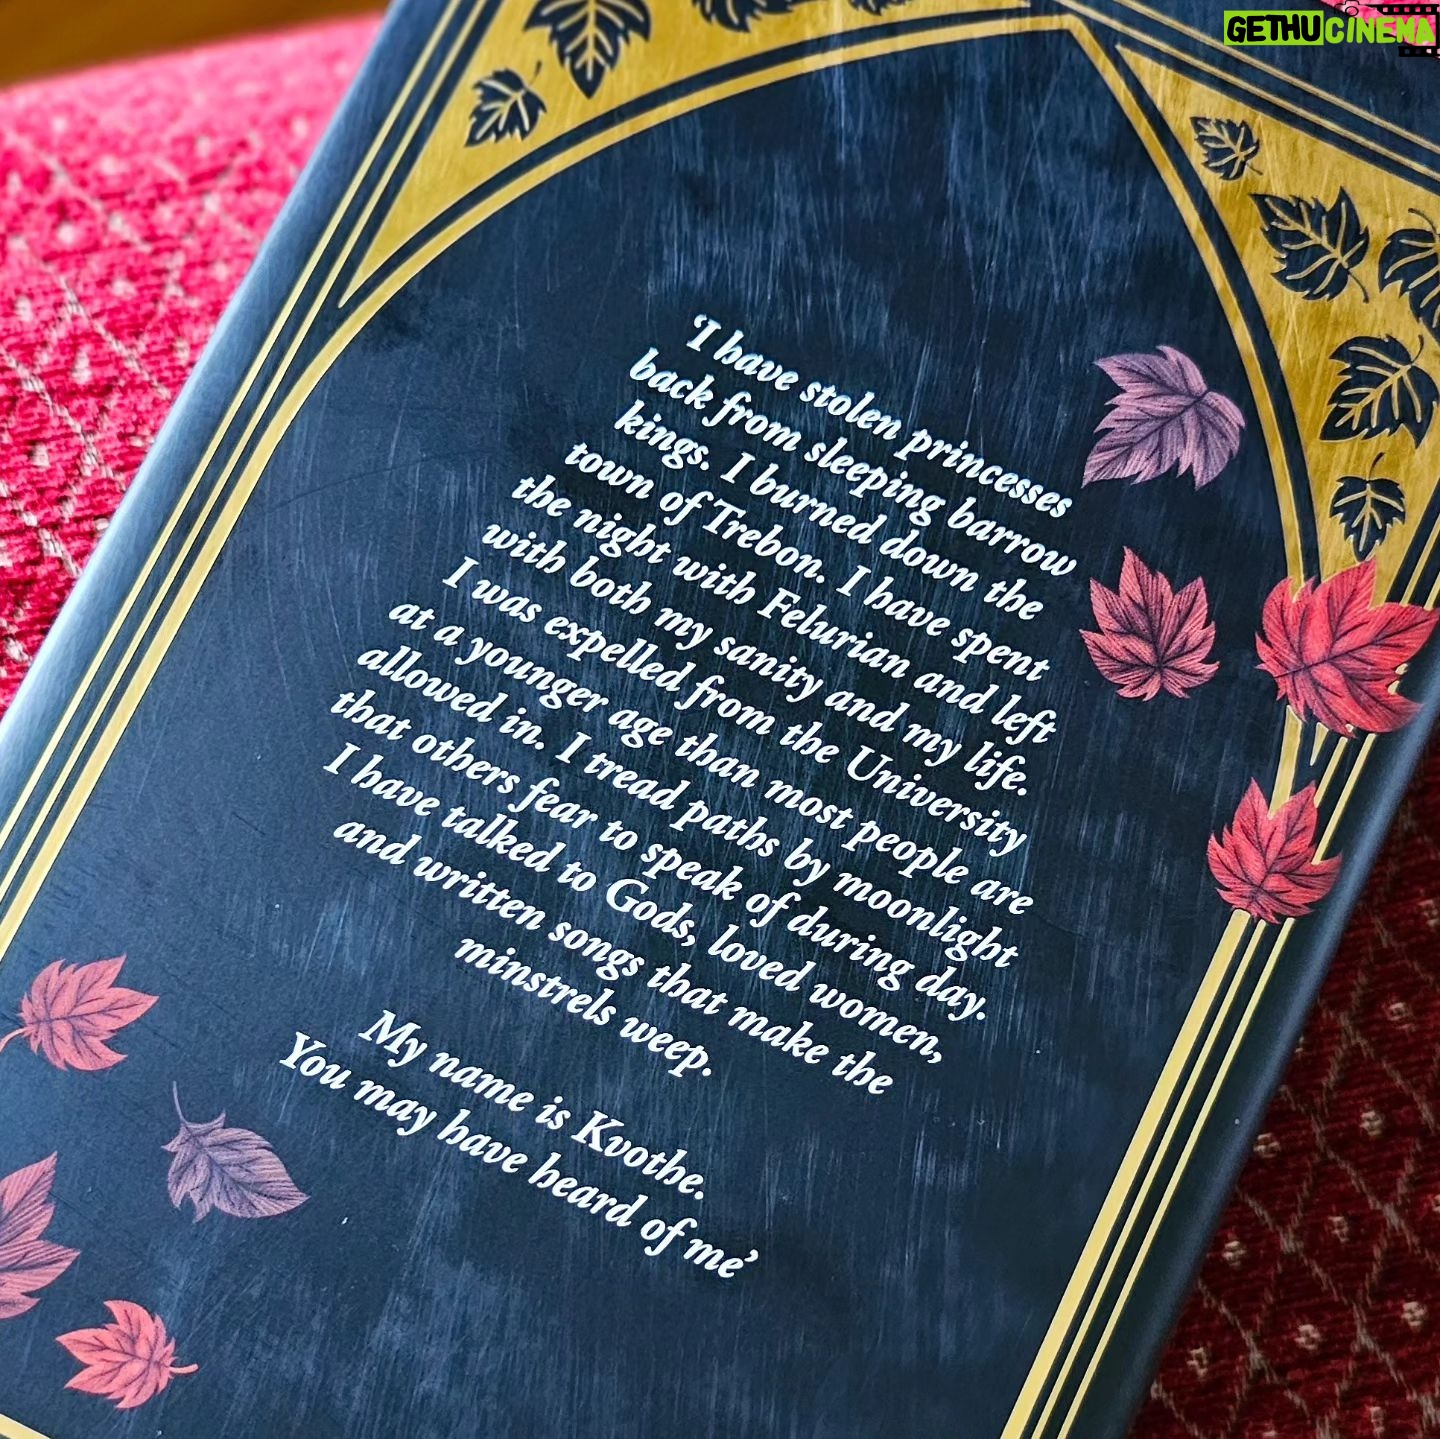 GETHUCINEMA
'I have stolen princesses
back from sleeping barrow
kings. I burned down the
town of Trebon. I have spent
the night with Felurian and left
with both my sanity and my life.
I was expelled from the University
at a younger age than most people are
allowed in. I tread paths by moonlight
that others fear to speak of during day.
I have talked to Gods, loved women,
and written songs that make the
minstrels weep.
My name is Kvothe.
You may have heard of me'